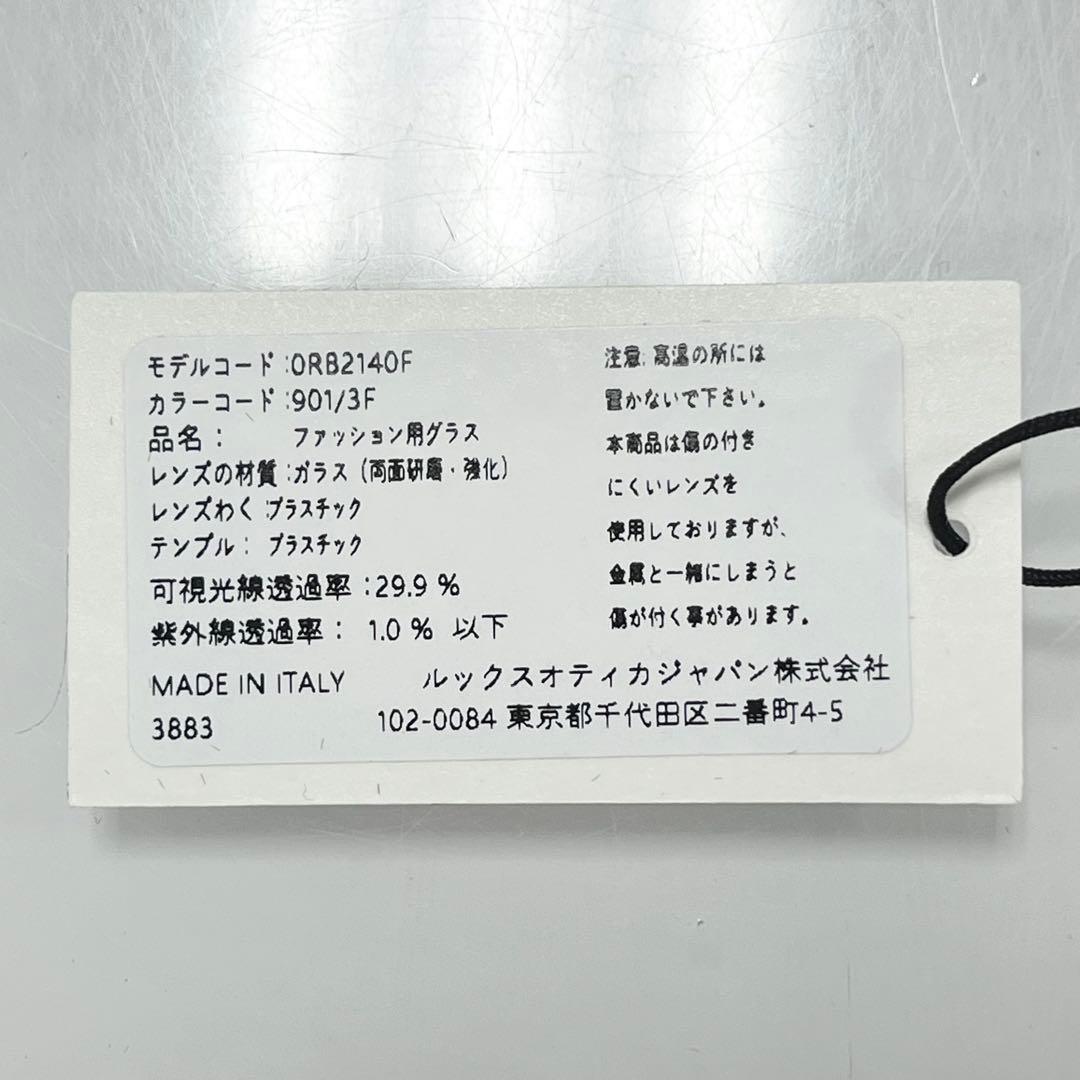 モデルコード :0RB2140F
カラーコード :901/3F
品名: ファッション用グラス
レンズの材質:ガラス (両面研磨・強化)
レンズわく:プラスチック
テンプル: プラスチック
可視光線透過率:29.9 %
紫外線透過率: 1.0 % 以下
注意:高温の所には
置かないで下さい。
本商品は傷の付き
にくいレンズを
使用しておりますが、
金属と一緒にしまうと
傷が付く事があります。
MADE IN ITALY ルックスオティカジャパン株式会社
3883 102-0084 東京都千代田区二番町4-5